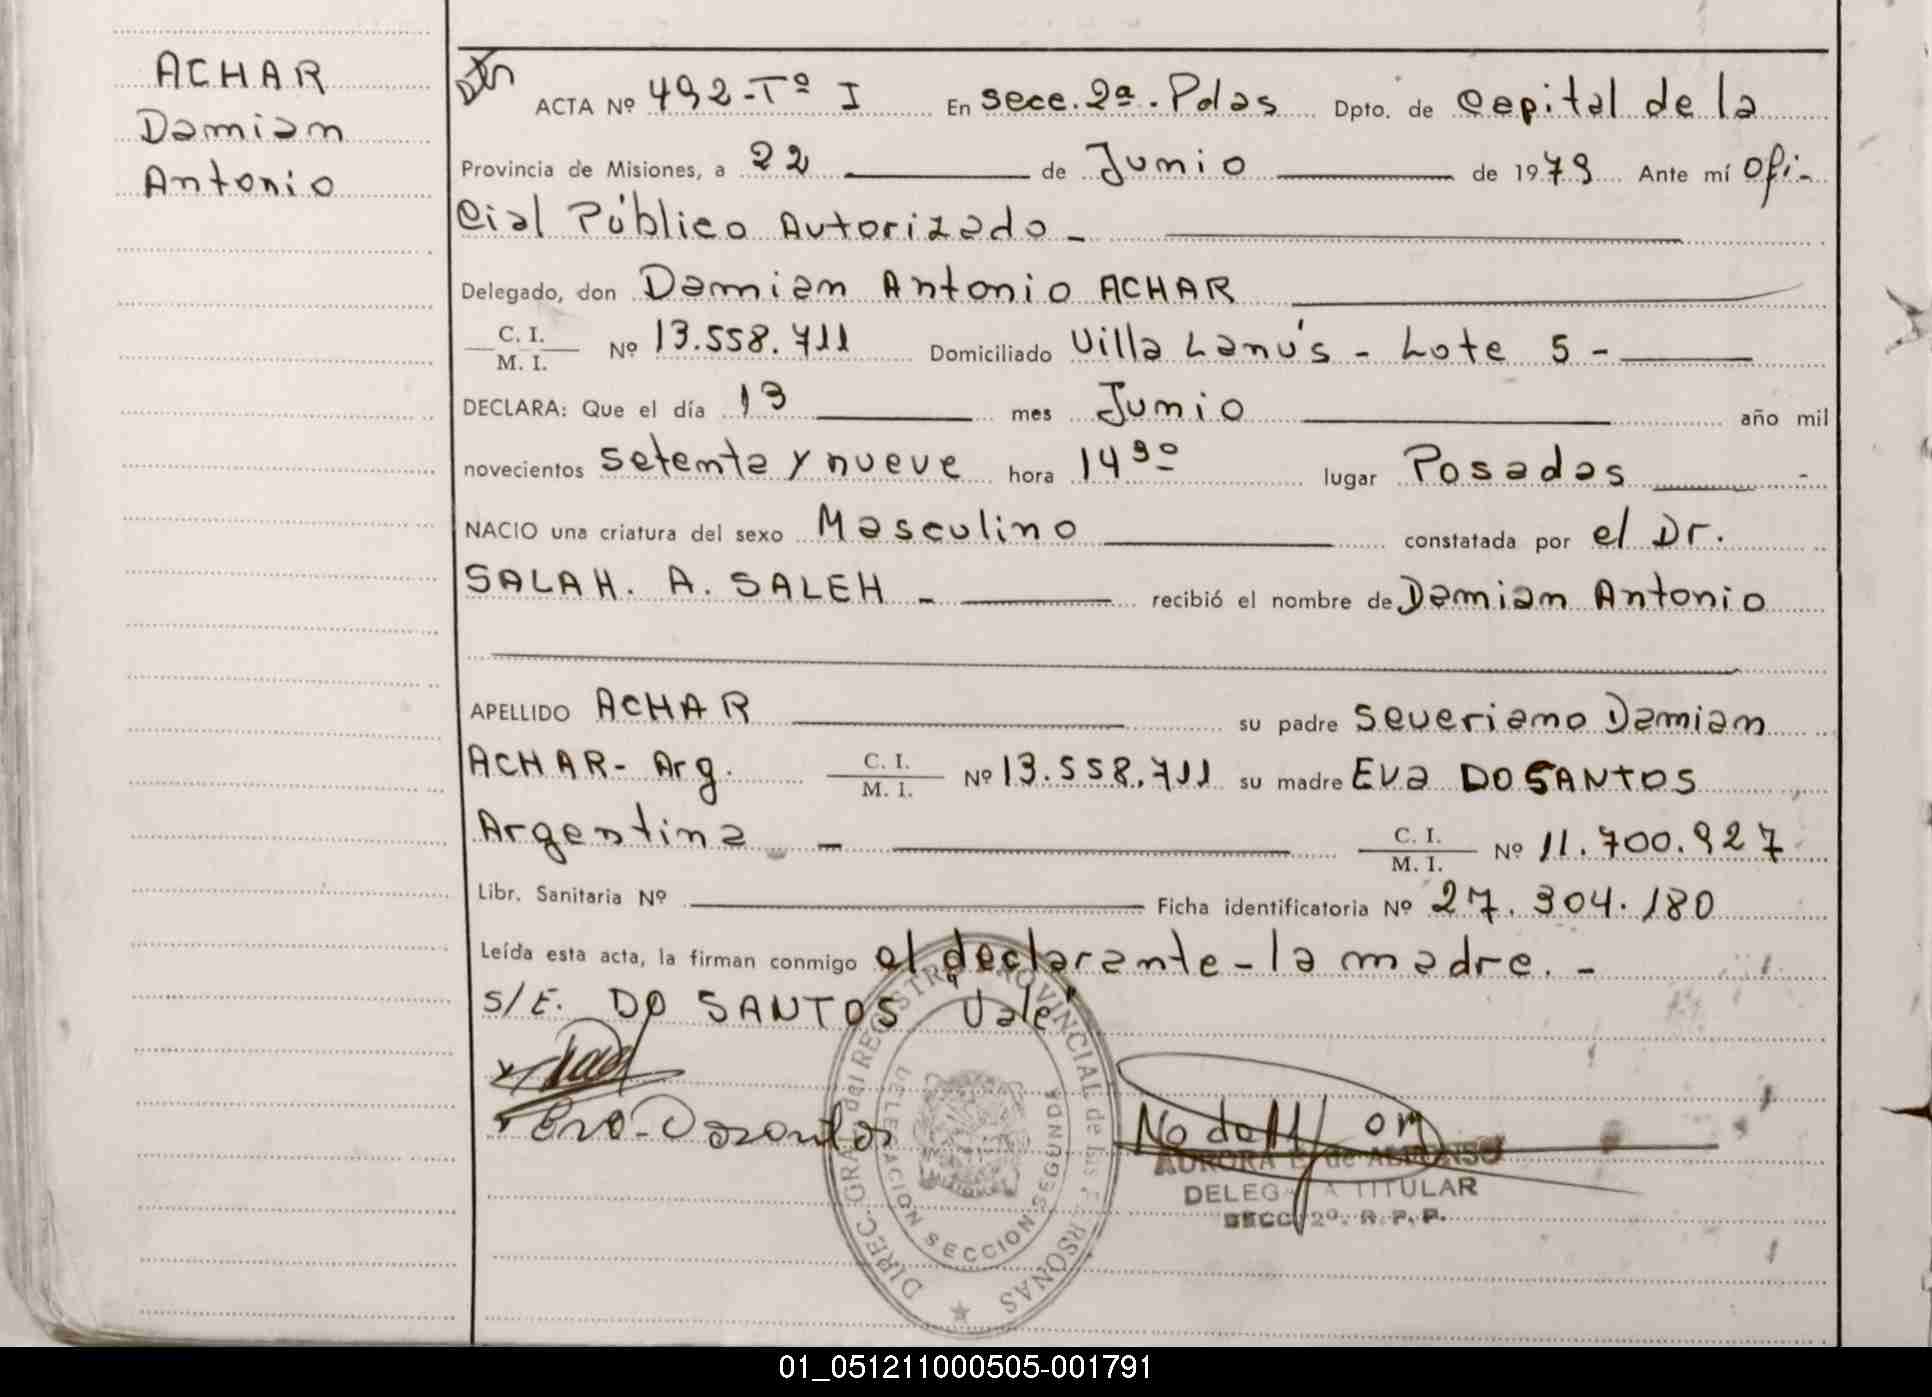 ACHAR
Damian
Antonio
ACTA Nº 492-Tº I En Secc. 2ª. Pdas Dpto. de Capital de la
Provincia de Misiones, a 22 de Junio de 1979 Ante mí Ofi-
cial Público Autorizado -
Delegado, don Damian Antonio ACHAR
C. I.
M. I. Nº 13.558.711 Domiciliado Villa Lanús - Lote 5 -
DECLARA: Que el día 13 mes Junio año mil
novecientos setenta y nueve hora 14 30 lugar Posadas -
NACIO una criatura del sexo Masculino constatada por el Dr.
SALAH. A. SALEH - recibió el nombre de Damian Antonio
APELLIDO ACHAR su padre Severiano Damian
ACHAR- Arg. C. I.
M. I. Nº 13.558.711 su madre Eva DO SANTOS
Argentina - C. I.
M. I. Nº 11.700.927
Libr. Sanitaria Nº Ficha identificatoria Nº 27.304.180
Leída esta acta, la firman conmigo el declarante - la madre. -
S/E. DO SANTOS "Vale"
Eva Dosantos
DIREC. GRAL. del REGISTRO PROVINCIAL de las PERSONAS
DELEGACION SECCION SEGUNDA
AURORA E. de ALFONSO
DELEGADA TITULAR
SECC. 2º. R. P. P.
01_051211000505-001791